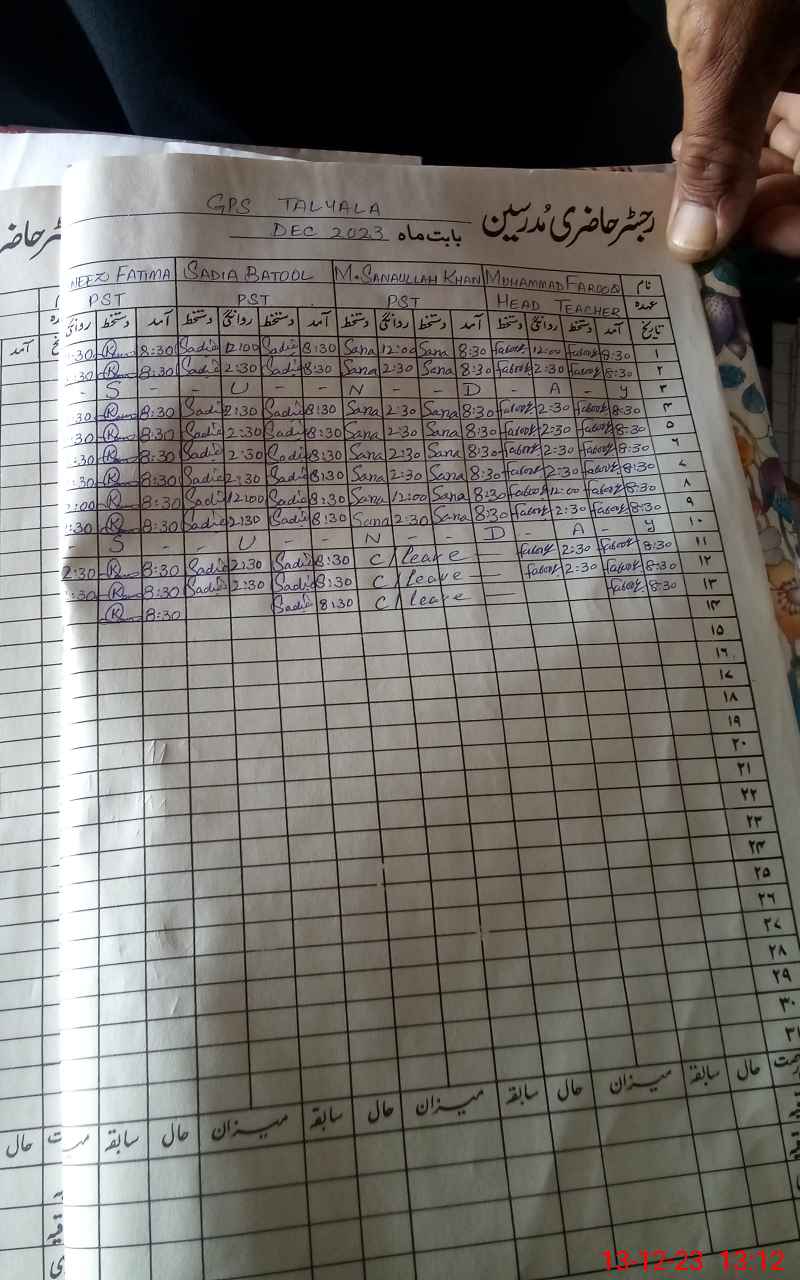 رجسٹر حاضری مُدرسین
GPS TALYALA
بابت ماہ DEC 2023
FATIMA SADIA BATOOL M. SANAULLAH KHAN MUHAMMAD FAROOQ نام
PST PST PST HEAD TEACHER عہدہ
تاریخ آمد دستخط روانگی دستخط آمد دستخط روانگی دستخط آمد دستخط روانگی دستخط آمد دستخط روانگی
:30 R 8:30 Sadia 12:00 Sadia 8:30 Sana 12:00 Sana 8:30 farooq 12:00 farooq 8:30 ۱
:30 R 8:30 Sadia 2:30 Sadia 8:30 Sana 2:30 Sana 8:30 farooq 2:30 farooq 8:30 ۲
- S - - U - - N - - D - A - y ۳
:30 R 8:30 Sadia 2:30 Sadia 8:30 Sana 2:30 Sana 8:30 farooq 2:30 farooq 8:30 ۴
:30 R 8:30 Sadia 2:30 Sadia 8:30 Sana 2:30 Sana 8:30 farooq 2:30 farooq 8:30 ۵
:30 R 8:30 Sadia 2:30 Sadia 8:30 Sana 2:30 Sana 8:30 farooq 2:30 farooq 8:30 ۶
:30 R 8:30 Sadia 2:30 Sadia 8:30 Sana 2:30 Sana 8:30 farooq 2:30 farooq 8:30 ۷
:00 R 8:30 Sadia 12:00 Sadia 8:30 Sana 12:00 Sana 8:30 farooq 12:00 farooq 8:30 ۸
:30 R 8:30 Sadia 2:30 Sadia 8:30 Sana 2:30 Sana 8:30 farooq 2:30 farooq 8:30 ۹
- S - - U - - N - - D - A - y ۱۰
2:30 R 8:30 Sadia 2:30 Sadia 8:30 C/leave farooq 2:30 farooq 8:30 ۱۱
:30 R 8:30 Sadia 2:30 Sadia 8:30 C/leave farooq 2:30 farooq 8:30 ۱۲
R 8:30 Sadia 8:30 C/leave farooq 8:30 ۱۳
۱۴
۱۵
۱۶
۱۷
۱۸
۱۹
۲۰
۲۱
۲۲
۲۳
۲۴
۲۵
۲۶
۲۷
۲۸
۲۹
۳۰
۳۱
حال سابقہ میزان حال سابقہ میزان حال سابقہ میزان حال سابقہ
حال
آمد
13-12-23 13:12